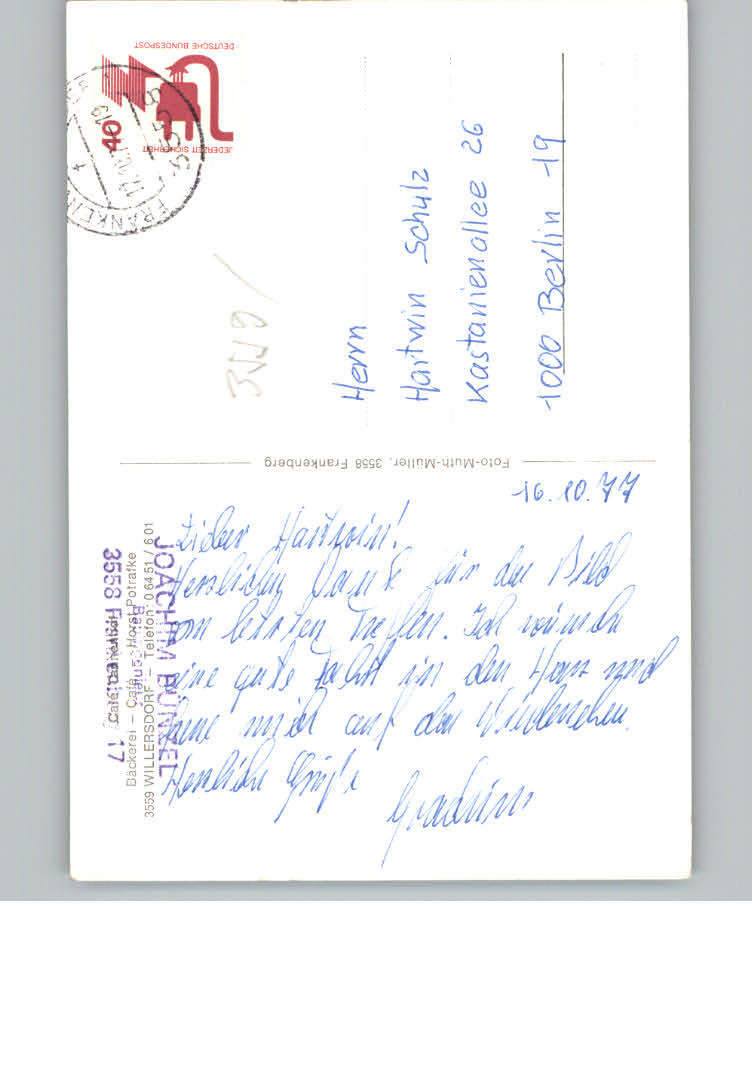 16.10.77
Lieber Hartwin!
Herzlichen Dank für das Bild
vom letzten Treffen. Ich wünsche
eine gute Fahrt in den Harz und
freue mich auf das Wiedersehen.
Herzliche Grüße
Joachim
Herrn
Hartwin Schulz
Kastanienallee 26
1000 Berlin 19
DEUTSCHE BUNDESPOST
40
JEDERZEIT SICHERHEIT
FRANKEN
Foto-Muth-Müller, 3558 Frankenberg
Bäckerei – Café Horst Potratke
3559 WILLERSDORF – Telefon: 0 64 51 / 6 01
JOACHIM BÜNGEL
3558 Frankenberg 17